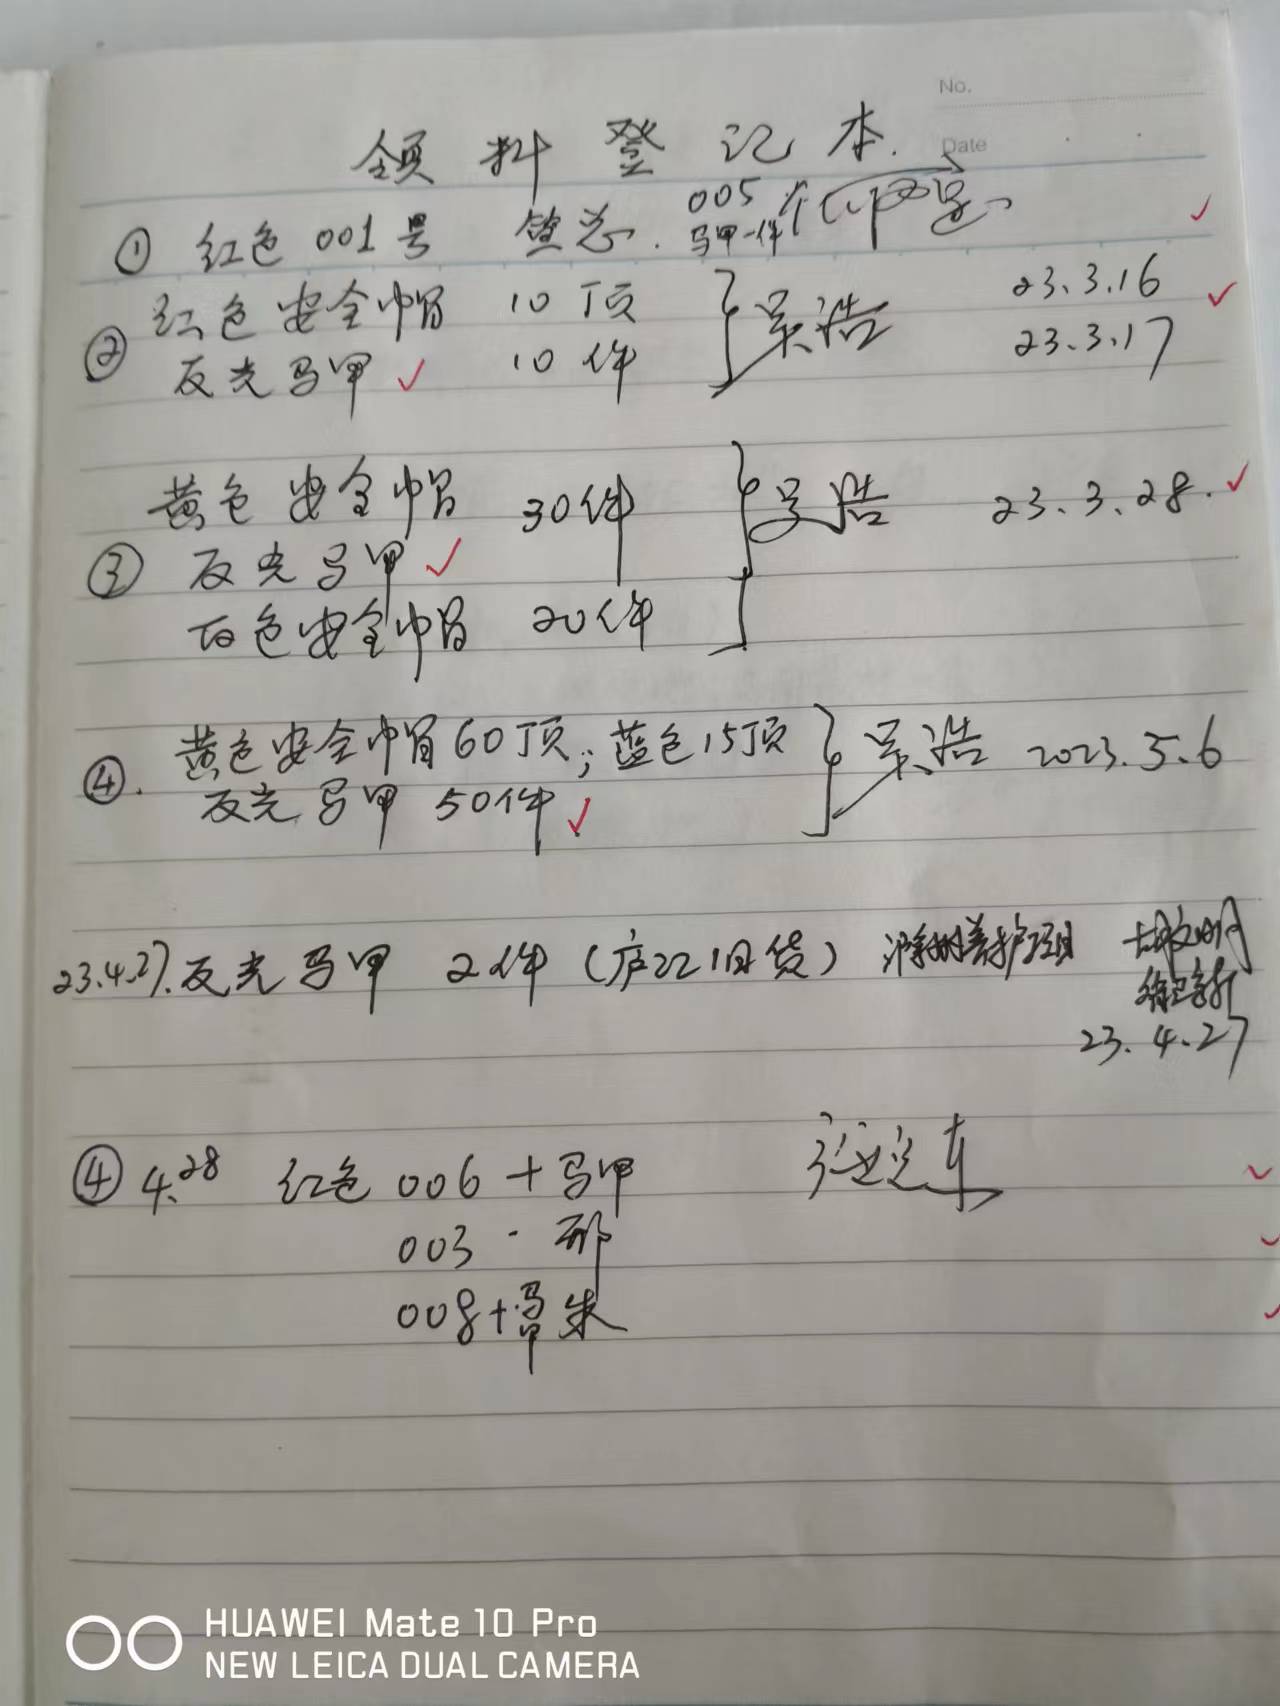 No.
Date
领料登记本.
① 红色001号 005
马甲一件
② 红色安全帽 10顶 吴浩 23.3.16
反光马甲 10件 23.3.17
黄色安全帽 30件 吴浩 23.3.28.
③ 反光马甲
白色安全帽 20件
④. 黄色安全帽60顶;蓝色15顶 吴浩 2023.5.6
反光马甲 50件
23.4.27.反光马甲 2件(庐22旧货) 养护班组 胡文明
23.4.27
④ 4.28 红色 006+马甲
003 · 邢
008+马甲 朱
HUAWEI Mate 10 Pro
NEW LEICA DUAL CAMERA